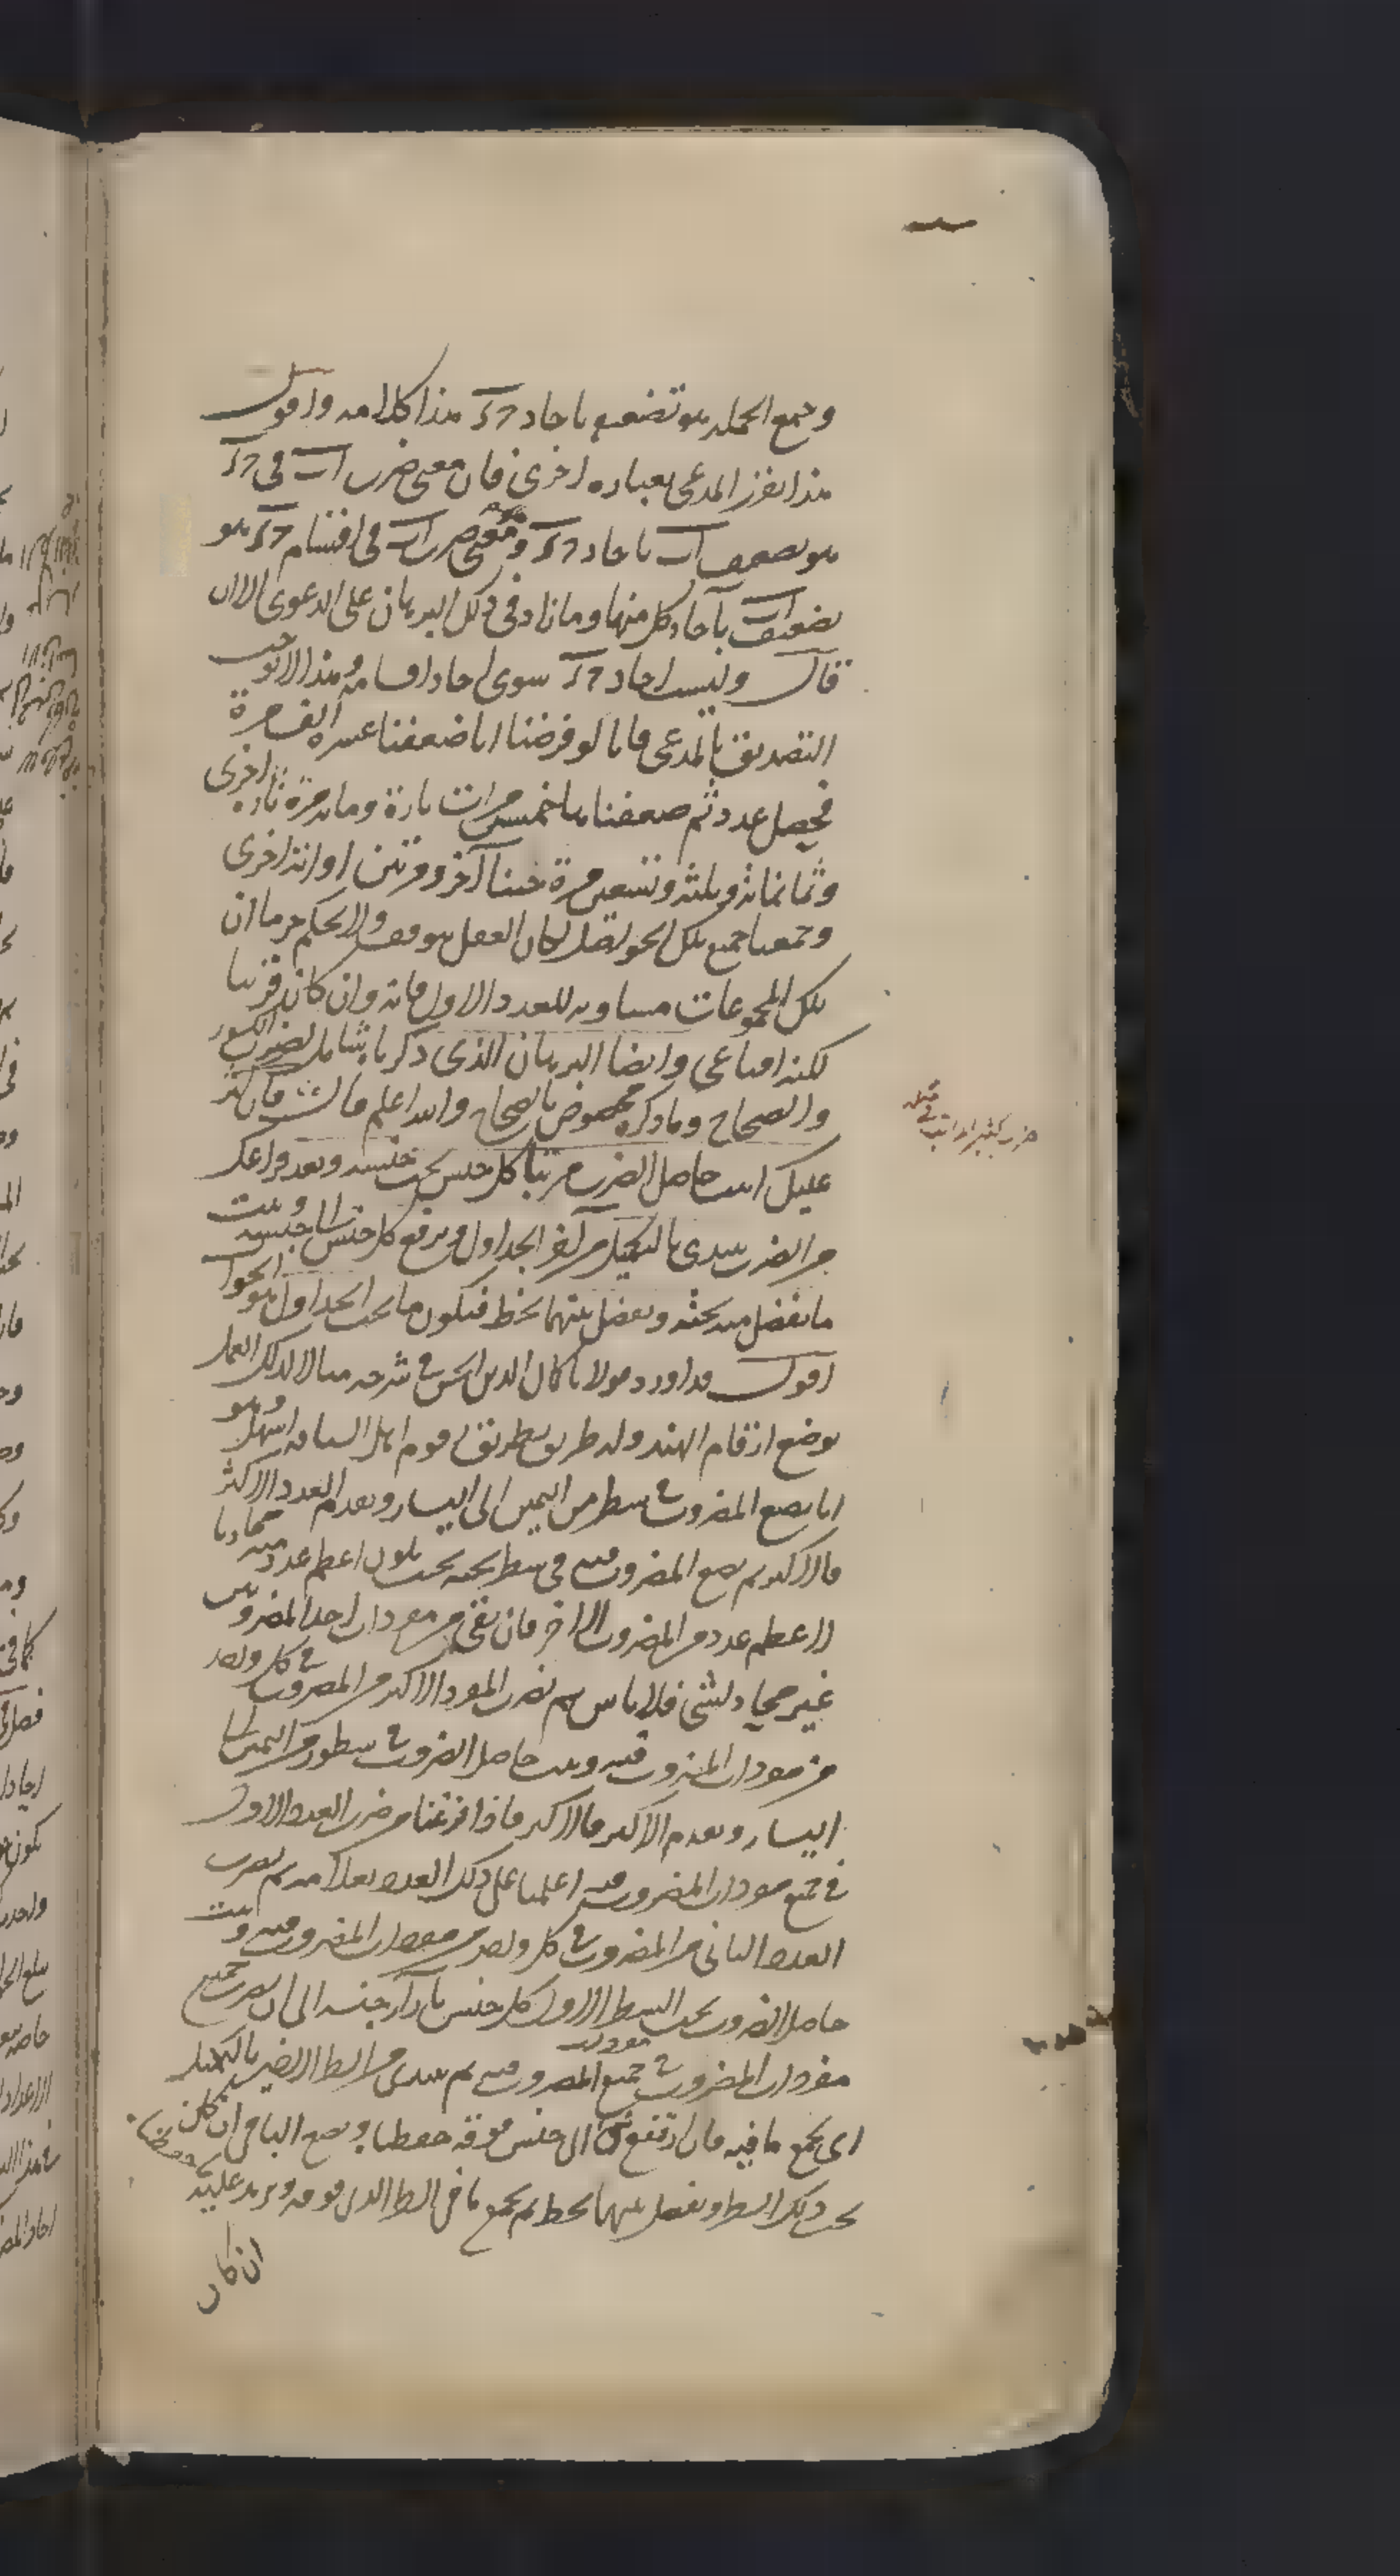 وجميع الجملة هو تضعيف باحاد هذا كلامه واقول
هذا تقرير المدعى بعبارة اخرى فان معنى ضرب اب فى
هو تضعيف اب باحاد ومعنى ضرب اب فى اقسام هو
تضعيف اب بآحاد كل منها وما زاد فى ذلك البرهان على الدعوى الا ان
قال وليست احاد سوى احاد اقسامه وهذا لا يوجب
التصديق بالمدعى فانا لو فرضنا انا ضعفنا عشرة الف مرة
فحصل عدد ثم ضعفناها خمس مرات تارة ومائة مرة تارة اخرى
وثمانمائة وثلثة وتسعين مرة حينا آخر ومرتين اونة اخرى
وجمعنا جميع تلك الحواصل لكان العقل هو وقف والحكم جزما ان
تلك المجموعات مساوية للعدد الاول فانه وان كان قريبا
لكنه اقناعى وايضا البرهان الذى ذكرنا شامل لضرب الكسور
والصحاح وما ذكره مخصوص بالصحاح والله اعلم قال فان كثر
عليك اثبت حاصل الضرب مرتبا كل جنس تحت جنسه وبعد فراغك
من الضرب تبتدى بالتكميل من آخر الجداول وترفع كل جنس الى جنسه وتثبت
ما يفضل منه تحته وتفصل بينهما بخط فيكون ما تحت الجداول هو الجواب
اقول قد اورد مولانا كمال الدين الحسن فى شرحه مثالا لذلك العمل
بوضع ارقام الهند وله طريق بطريق قوم اهل السياقة اسهل وهو
انا نضع المضروب فى سطر من اليمين الى اليسار ونقدم العدد الاكثر
فالاكثر ثم نضع المضروب فيه فى سطر تحته بحيث يكون اعظم عدد منه محاذيا
لاعظم عدد من المضروب الاخر فان بقى من مفردات احد المضروبين
غير محاذ لشى فلا باس ثم نضرب المفرد الاكبر من المضروب فى كل واحد
من مفردات المضروب فيه ونثبت حاصل الضروب فى سطور من اليمين الى
اليسار ونقدم الاكبر فالاكبر فاذا فرغنا من ضرب العدد الاول
فى جميع مفردات المضروب فيه اعلمنا على ذلك العدد بعلامة ثم نضرب
العدد الثانى من المضروب فى كل واحد من مفردات المضروب فيه ونثبت
حاصل الضروب تحت السطر الاول كل جنس بازآء جنسه الى ان نضرب جميع
مفردات المضروب فى جميع مفردات المضروب فيه ثم نبتدى من السطر الاخير بالتكميل
اى نجمع ما فيه فان ارتفع شى الى جنس فوقه حفظناه ونضع الباقى ان كان
تحت ذلك السطر ونفصل بينهما بخط ثم نجمع ما فى السطر الذى فوقه ونزيد عليه ما حفظناه
ان كان
ضرب كثير المراتب فى مثله